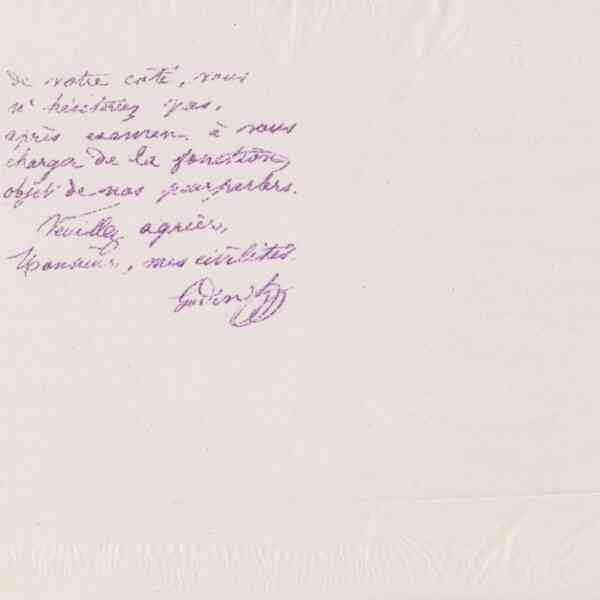 de votre côté, vous
n'hésitiez pas,
après examen à vous
charger de la fonction
objet de nos pourparlers.
Veuillez agréer,
Monsieur, mes civilités.
Godin